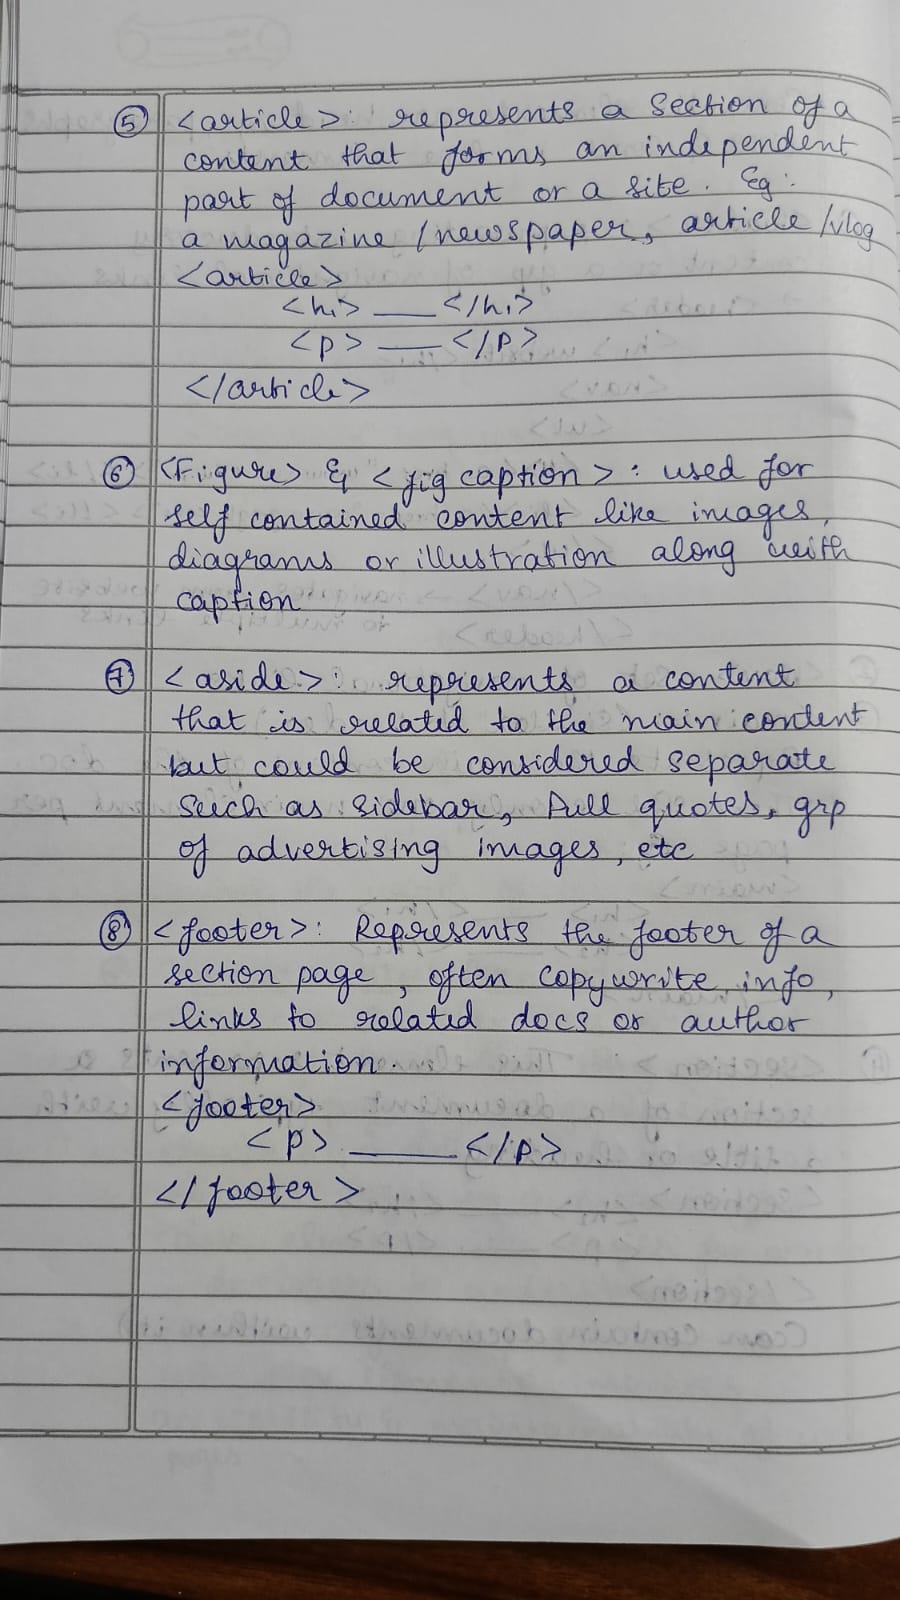 ⑤ <article>: represents a section of a
content that forms an independent
part of document or a site. Eg:
a magazine /newspaper, article/vlog
<article>
<h1> ___ </h1>
<p> ___ </p>
</article>
⑥ <Figure> & <fig caption>: used for
self contained content like images,
diagrams or illustration along with
caption
⑦ <aside>: represents a content
that is related to the main content
but could be considered separate
such as sidebar, Pull quotes, grp
of advertising images, etc
⑧ <footer>: Represents the footer of a
section page, often copywrite info,
links to related docs or author
information.
<footer>
<p> ___ </p>
</footer>